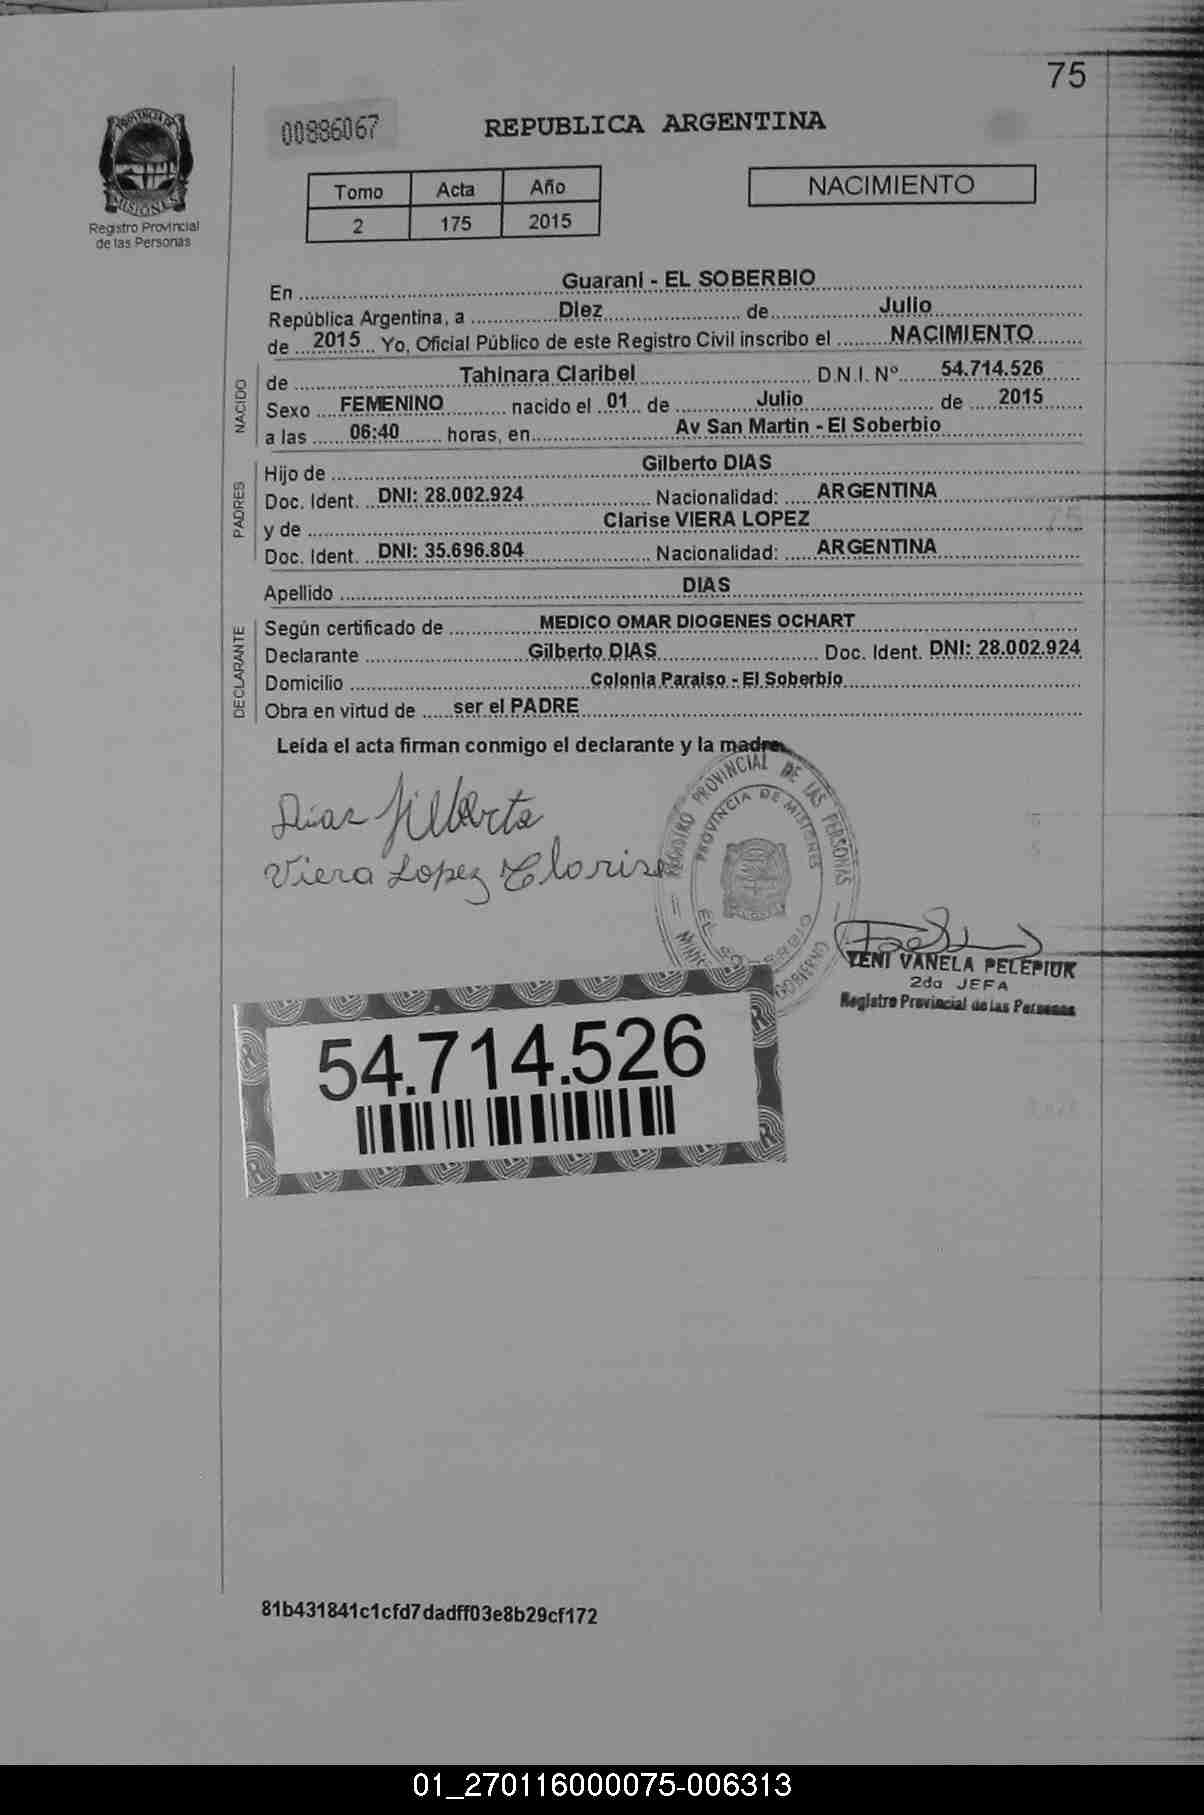 75
PROVINCIA DE
MISIONES
Registro Provincial
de las Personas
00886067
REPUBLICA ARGENTINA
Tomo Acta Año
2 175 2015
NACIMIENTO
En Guarani - EL SOBERBIO
República Argentina, a Diez de Julio
de 2015 Yo, Oficial Público de este Registro Civil inscribo el NACIMIENTO
NACIDO
de Tahinara Claribel D.N.I. Nº 54.714.526
Sexo FEMENINO nacido el 01 de Julio de 2015
a las 06:40 horas, en Av San Martin - El Soberbio
PADRES
Hijo de Gilberto DIAS
Doc. Ident. DNI: 28.002.924 Nacionalidad: ARGENTINA
y de Clarise VIERA LOPEZ
Doc. Ident. DNI: 35.696.804 Nacionalidad: ARGENTINA
Apellido DIAS
DECLARANTE
Según certificado de MEDICO OMAR DIOGENES OCHART
Declarante Gilberto DIAS Doc. Ident. DNI: 28.002.924
Domicilio Colonia Paraiso - El Soberbio
Obra en virtud de ser el PADRE
Leída el acta firman conmigo el declarante y la madre.
Dias Gilberto
Viera Lopez Clarise
REGISTRO PROVINCIAL DE LAS PERSONAS
PROVINCIA DE MISIONES
EL SOBERBIO
GOBIERNO
YENI VANELA PELEPIUK
2da JEFA
Registro Provincial de las Personas
54.714.526
81b431841c1cfd7dadff03e8b29cf172
01_270116000075-006313